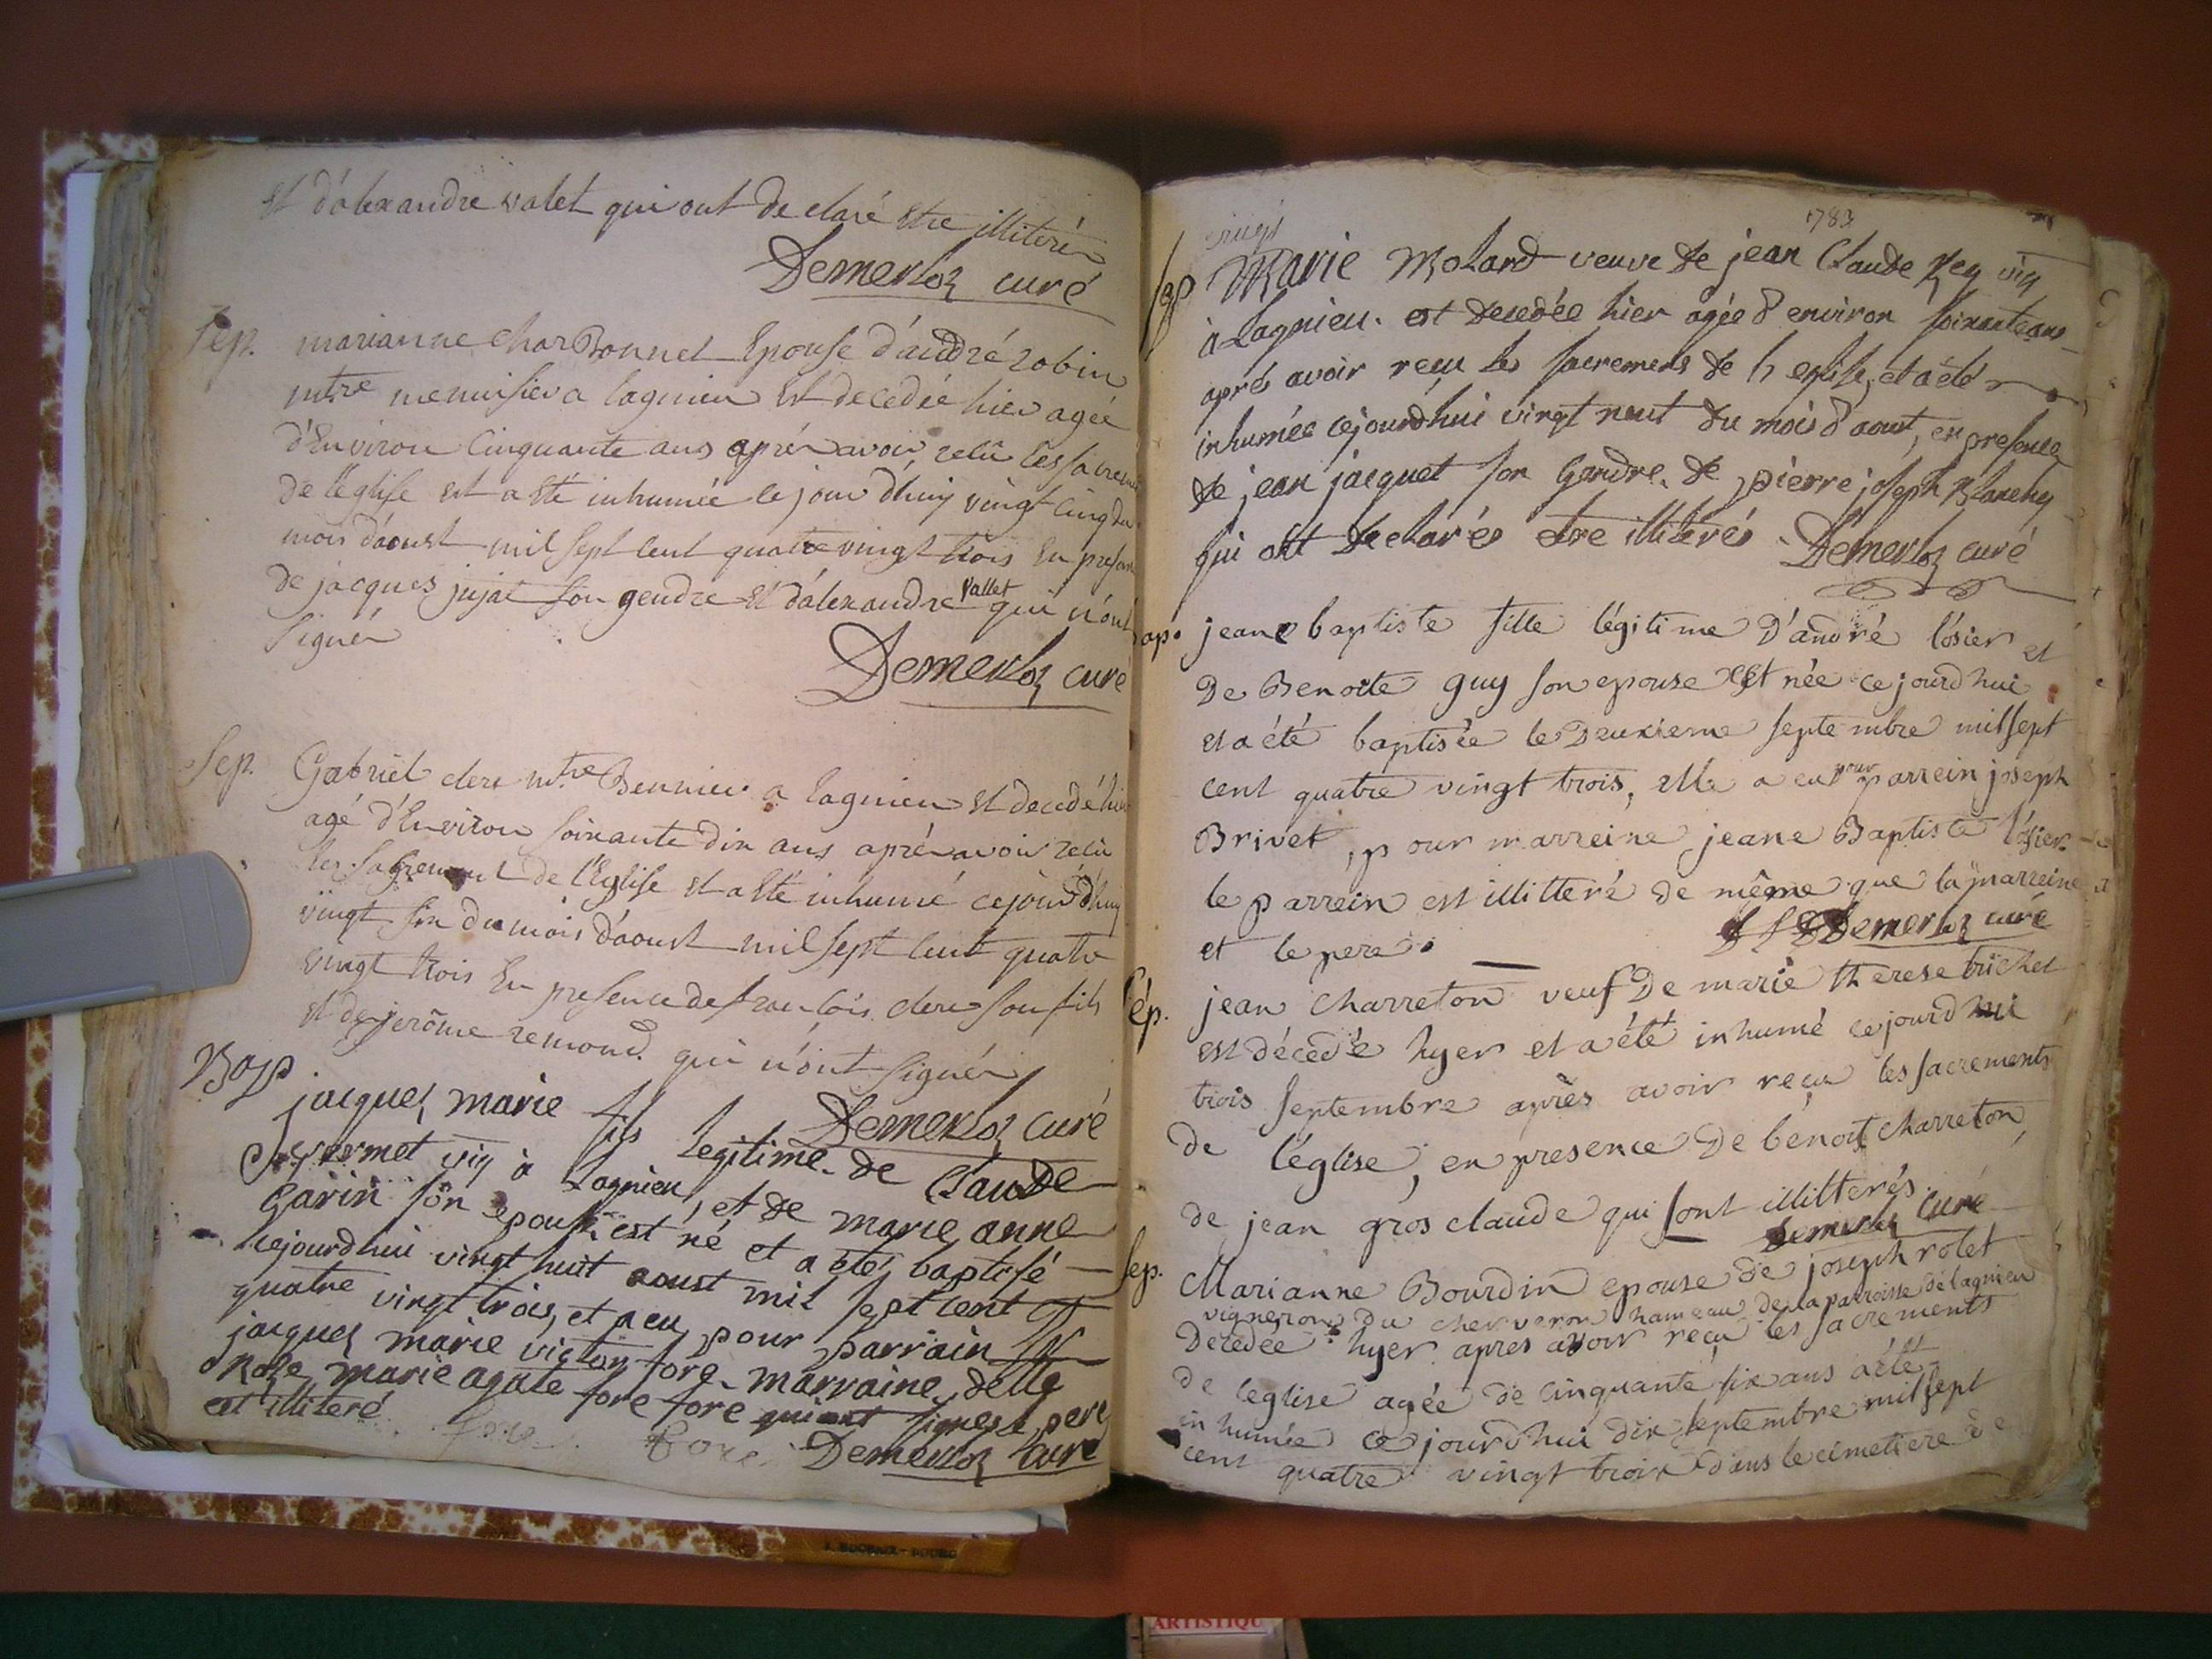 et d'alexandre valet qui ont declaré etre illiterés
Demerloz curé
Sep. marianne charbonnet Epouse d'andré robin
mtre menuisier a lagnieu est decedée hier agée
d'Environ Cinquante ans aprés avoir recû les sacremen
de l'eglise et a eté inhumée ce jour d'huy vingt cinq du
mois d'aoust mil sept cent quatre vingt trois En presen
de jacques jujat son gendre et d'alexandre vallet qui n'ont
signés
Demerloz curé
Sep. Gabriel clerc mtre a lagnieu est decedé hier
agé d'Environ soixante dix ans aprés avoir recû
les sacrement de l'Eglise et a eté inhumé ce jourd'huy
vingt six du mois d'aoust mil sept cent quatre
vingt trois En presence de francois clerc son fils
et de jerôme remond qui n'ont signés
Demerloz curé
Bap jacques marie fils legitime de Claude
vermet vig à Lagnieu, et de marie anne
Garin son epouse est né et a eté baptisé
cejourdhui vingt huit aoust mil sept cent
quatre vingt trois, et a eu pour parrain
jacques marie victor fore marraine delle
Roze marie agate fore fore qui ont signes le pere
est illiteré fore fore Demerloz curé
1783
vingt
Sep Marie Molard veuve de jean Claude Rey vig
à Lagnieu est decedée hier agée d'environ soixante ans
aprés avoir reçu les sacremens de l'eglise, et a eté
inhumée cejourdhui vingt neuf du mois d'aout, en presence
de jean jacquet son gendre de pierre joseph Blanchy
qui ont declarés etre illiterés Demerloz curé
Bap. jeane baptiste fille légitime d'andré lósier et
De Benoite guy son epouse est née ce jourdhui
et a été baptisée le deuxieme septembre mil sept
cent quatre vingt trois, elle a eu pour parrein joseph
Brivet, pour marreine jeane Baptiste lósier
le parrein est illitteré de même que la marreine
et le pere. Demerloz curé
Sép. jean charreton veuf de marie therese trichet
est décedé hyer et a été inhumé ce jourdhui
trois septembre après avoir reçu les sacrements
de l'église, en presence de benoit charreton
de jean gros claude qui sont illitterés.
Demerloz Curé
Sep. Marianne Bourdin epouse de joseph rolet
vigneron du cherveron hameau de la parroisse de lagnieu
Decedée hyer apres avoir reçu les sacrements
de l'eglise agée de cinquante six ans a été
inhumée ce jourdhui dix septembre mil sept
cent quatre vingt trois dans le cimetiere de
ARTISTIQU